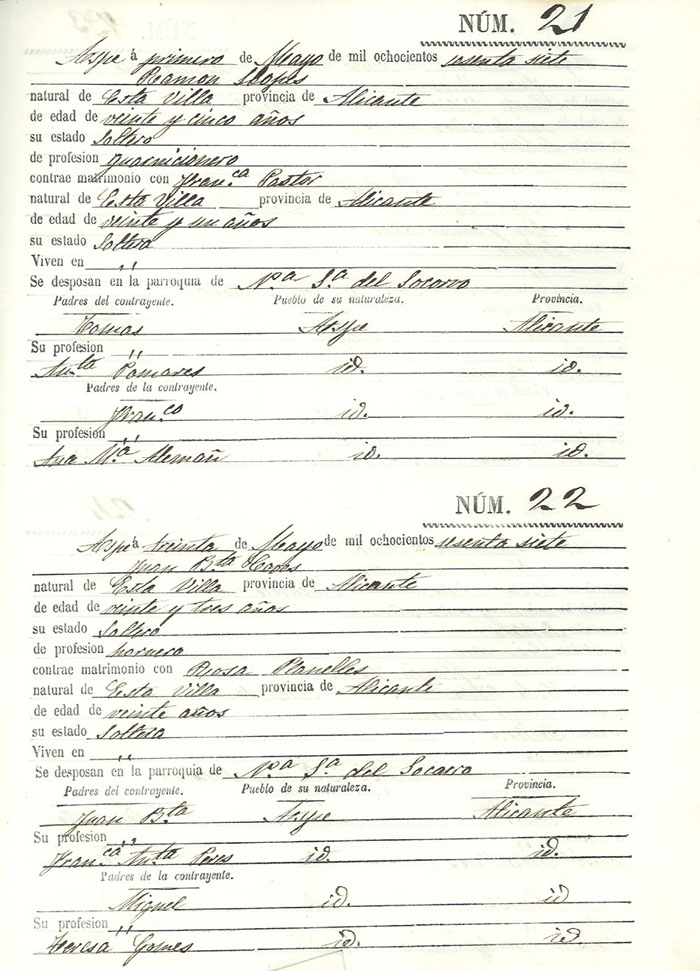 NÚM. 21
Aspe á primero de Mayo de mil ochocientos sesenta siete
Ramon Llopes
natural de Esta Villa provincia de Alicante
de edad de veinte y cinco años
su estado Soltero
de profesion guarnicionero
contrae matrimonio con Fran.ca Pastor
natural de Esta Villa provincia de Alicante
de edad de veinte y un años
su estado Soltera
Viven en ,,
Se desposan en la parroquia de N.a S.a del Socorro
Padres del contrayente. Pueblo de su naturaleza. Provincia.
Tomas Aspe Alicante
Su profesion ,,
An.ta Pomares id. id.
Padres de la contrayente.
Fran.co id. id.
Su profesion ,,
Ana M.a Alemañ id. id.
NÚM. 22
Aspe á treinta de Mayo de mil ochocientos sesenta siete
Juan B.ta
natural de Esta Villa provincia de Alicante
de edad de veinte y tres años
su estado Soltero
de profesion hornero
contrae matrimonio con Rosa Planelles
natural de Esta Villa provincia de Alicante
de edad de veinte años
su estado Soltera
Viven en ,,
Se desposan en la parroquia de N.a S.a del Socorro
Padres del contrayente. Pueblo de su naturaleza. Provincia.
Juan B.ta Aspe Alicante
Su profesion ,,
Fran.ca An.ta Peres id. id.
Padres de la contrayente.
Miguel id. id
Su profesion ,,
Teresa Gomes id. id.